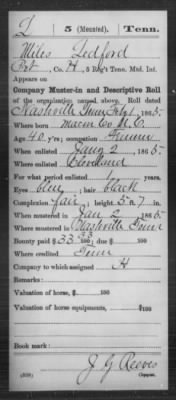 L 5 (Mounted). Tenn.
Miles Ledford
Pvt, Co. H, 5 Reg't Tenn. Mtd. Inf.
Appears on
Company Muster-in and Descriptive Roll
of the organization named above. Roll dated
Nashville Tenn Feby 1, 1865.
Where born Macon Co N.C.
Age 40 y'rs; occupation Farmer
When enlisted Jany 2, 1865.
Where enlisted Cleveland
For what period enlisted 1 years.
Eyes blue; hair black
Complexion fair; height 5 ft. 7 in.
When mustered in Jan 2, 1865.
Where mustered in Nashville Tenn
Bounty paid $33 33/100; due $ 100
Where credited Tenn
Company to which assigned H
Remarks:
Valuation of horse, $ 100
Valuation of horse equipments, $ 100
Book mark:
J. G. Reeves
(339) Copyist.